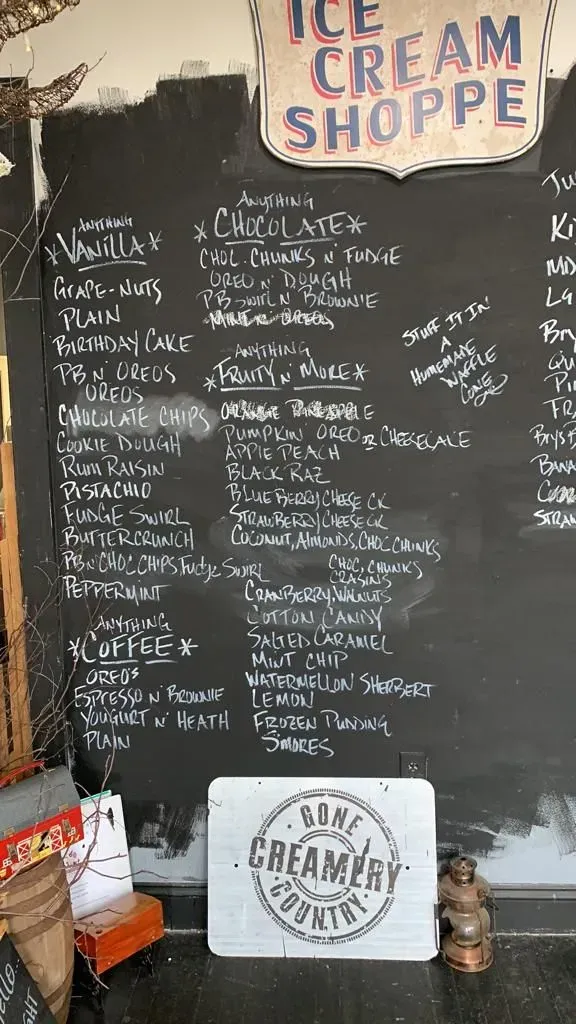 ICE
CREAM
SHOPPE
ANYTHING
*VANILLA*
GRAPE-NUTS
PLAIN
BIRTHDAY CAKE
PB N' OREOS
OREOS
CHOCOLATE CHIPS
COOKIE DOUGH
RUM RAISIN
PISTACHIO
FUDGE SWIRL
BUTTERCRUNCH
PB N' CHOC CHIPS, Fudge SWIRL
PEPPERMINT
ANYTHING
*COFFEE*
OREO'S
ESPRESSO N' BROWNIE
YOUGURT N' HEATH
PLAIN
ANYTHING
*CHOCOLATE*
CHOC. CHUNKS N' FUDGE
OREO N' DOUGH
PB SWIRL N' BROWNIE
MINT N' OREOS
ANYTHING
*FRUITY N' MORE*
PUMPKIN OREO OR CHEESECAKE
APPLE PEACH
BLACK RAZ
BLUEBERRY CHEESE CK
STRAWBERRY CHEESE CK
COCONUT, ALMONDS, CHOC CHUNKS
CHOC. CHUNKS
CRASINS
CRANBERRY, WALNUTS
COTTON CANDY
SALTED CARAMEL
MINT CHIP
WATERMELLON SHERBERT
LEMON
FROZEN PUDDING
S'MORES
STUFF IT IN
A
HOMEMADE
WAFFLE
CONE
GONE
CREAMERY
COUNTRY